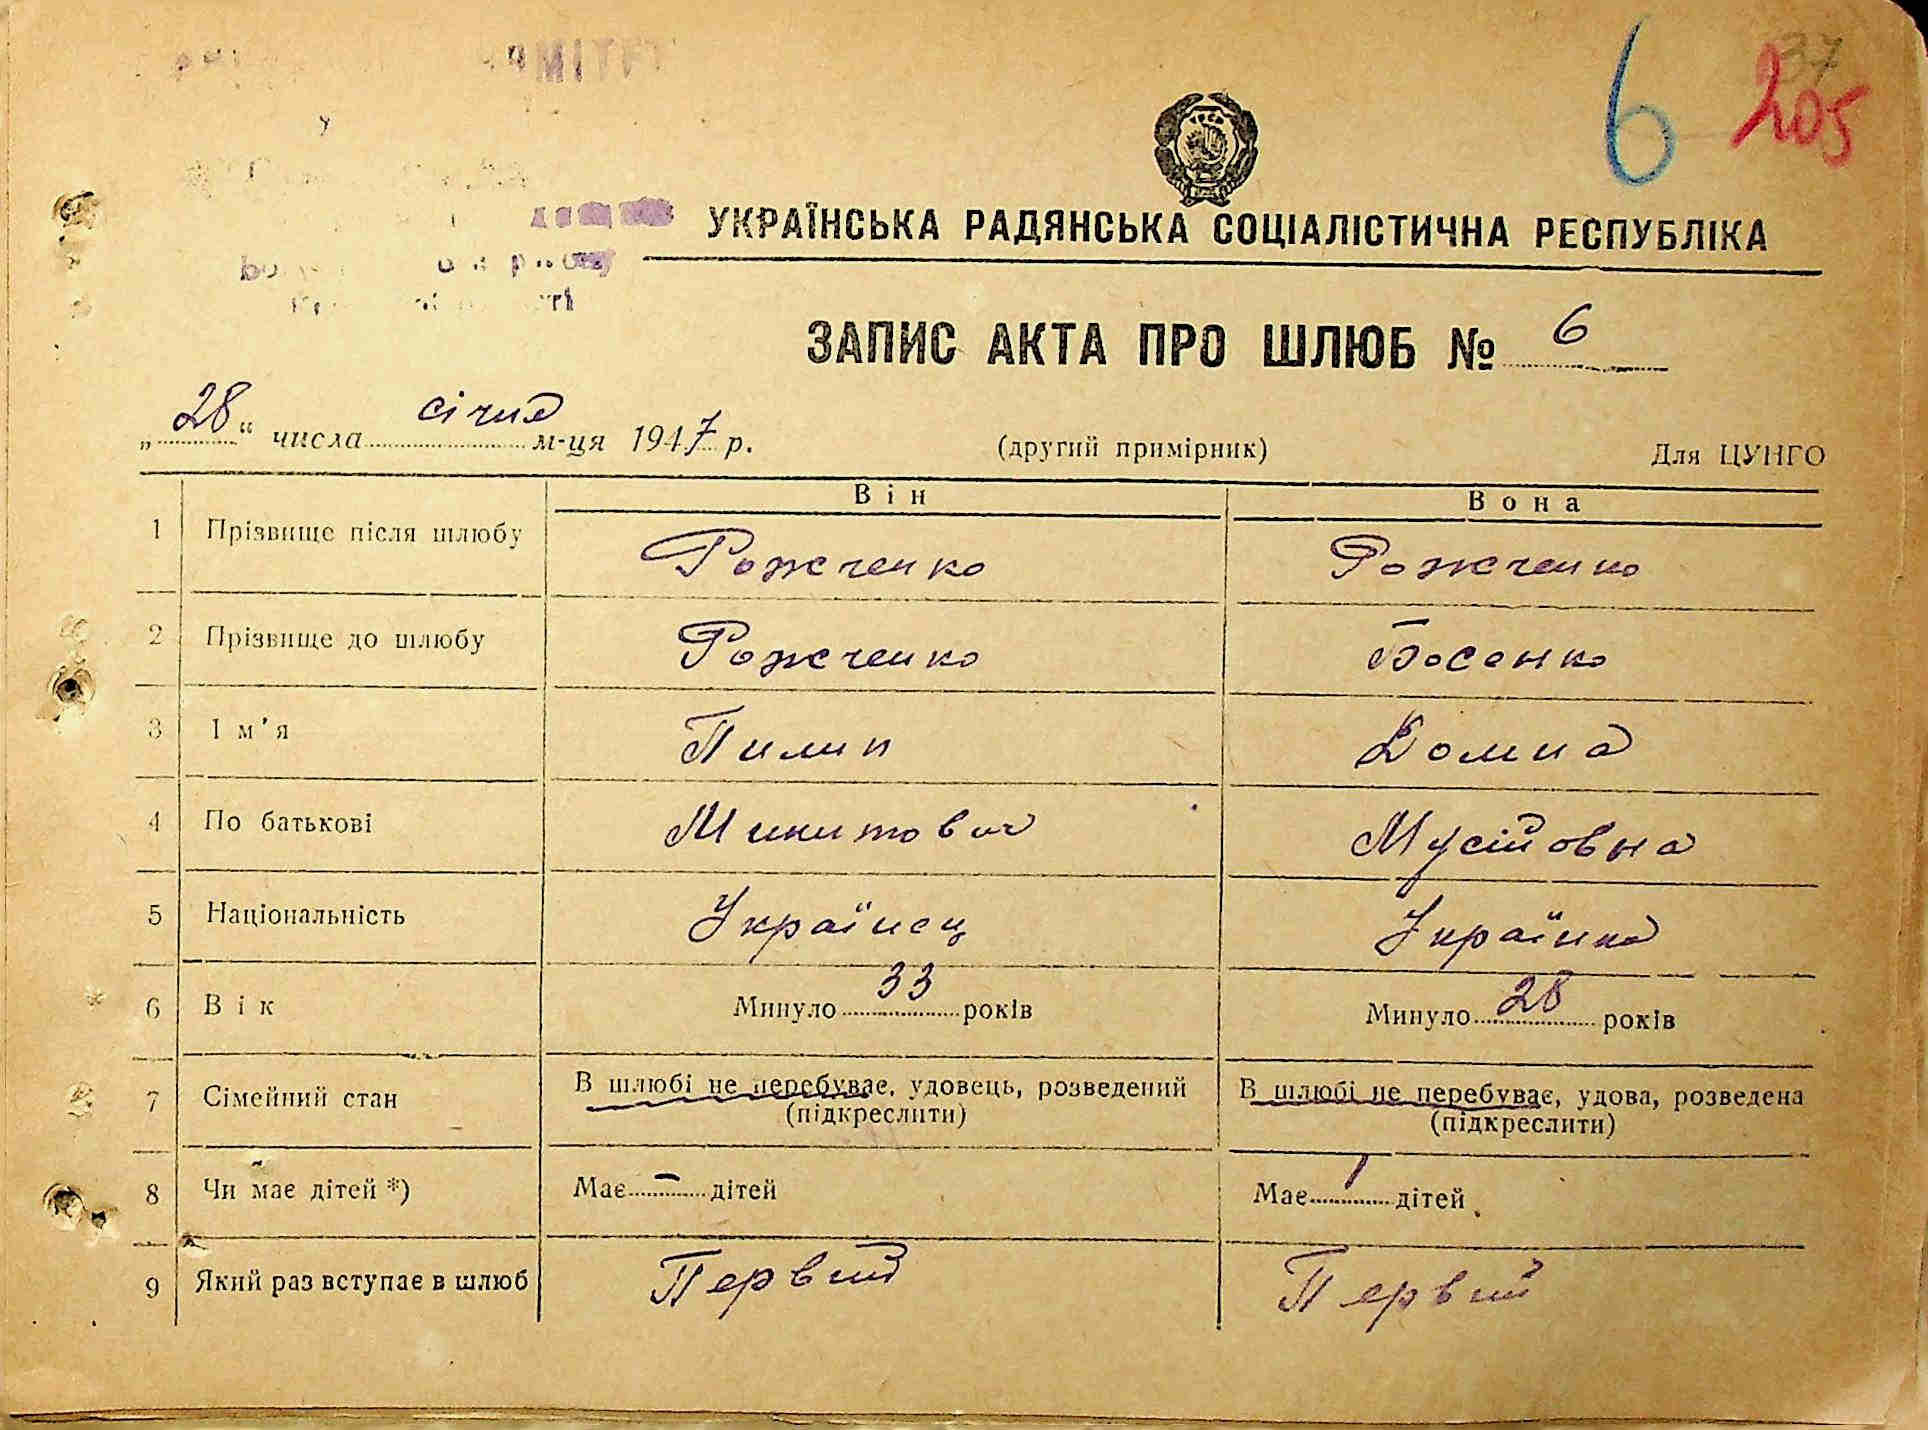 6 205
37
УКРАЇНСЬКА РАДЯНСЬКА СОЦІАЛІСТИЧНА РЕСПУБЛІКА
ЗАПИС АКТА ПРО ШЛЮБ № 6
„28“ числа січня м-ця 1947 р. (другий примірник) Для ЦУНГО
Він Вона
1 Прізвище після шлюбу Рожченко Рожченко
2 Прізвище до шлюбу Рожченко Босенко
3 Ім'я Пилип Домна
4 По батькові Микитович Мусійовна
5 Національність Українец Українка
6 Вік Минуло 33 років Минуло 28 років
7 Сімейний стан В шлюбі не перебуває, удовець, розведений В шлюбі не перебуває, удова, розведена
(підкреслити) (підкреслити)
8 Чи має дітей *) Має – дітей Має 1 дітей
9 Який раз вступає в шлюб Первий Первий